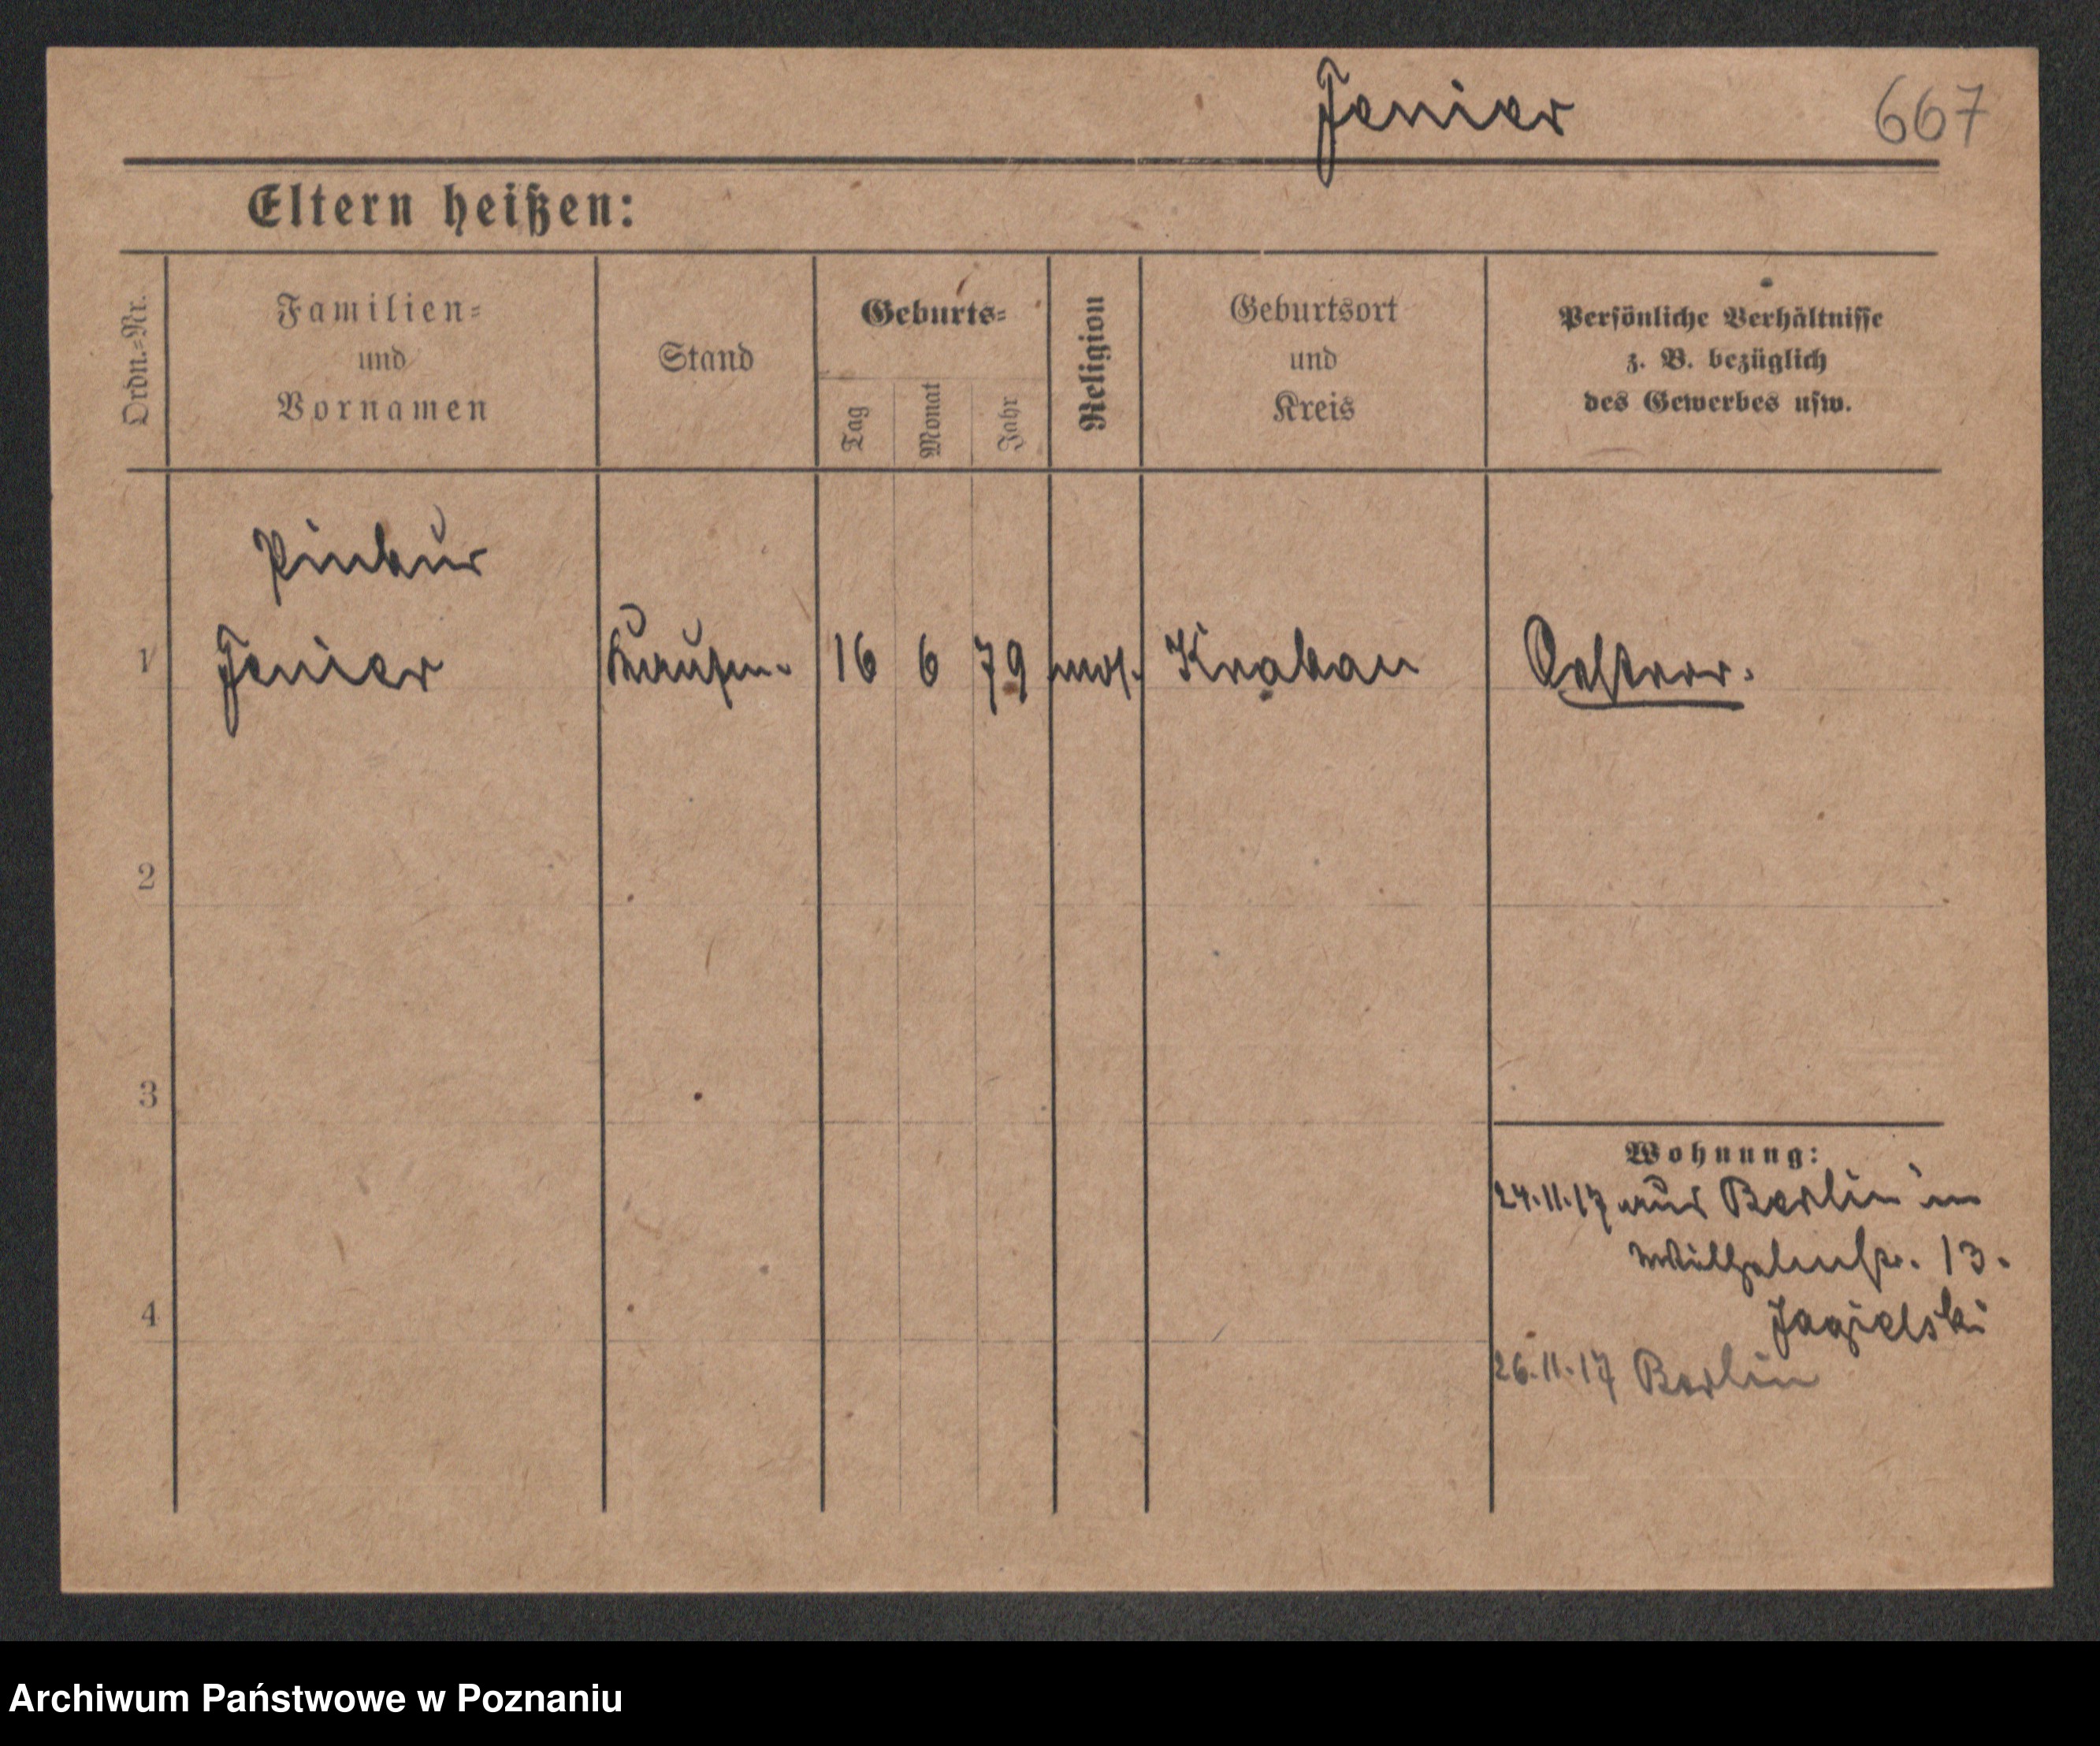 Jenier 667
Eltern heißen:
Ordn.=Nr.
Familien=
und
Vornamen
Stand
Geburts=
Tag
Monat
Jahr
Religion
Geburtsort
und
Kreis
Persönliche Verhältnisse
z. B. bezüglich
des Gewerbes usw.
1 Jenier 16 6 79 mos. Krakau Oesterr.
2
3
4
Wohnung:
24.11.17 aus Berlin in
Wilhelmstr. 13.
Jagielski
26.11.17 Berlin
Archiwum Państwowe w Poznaniu